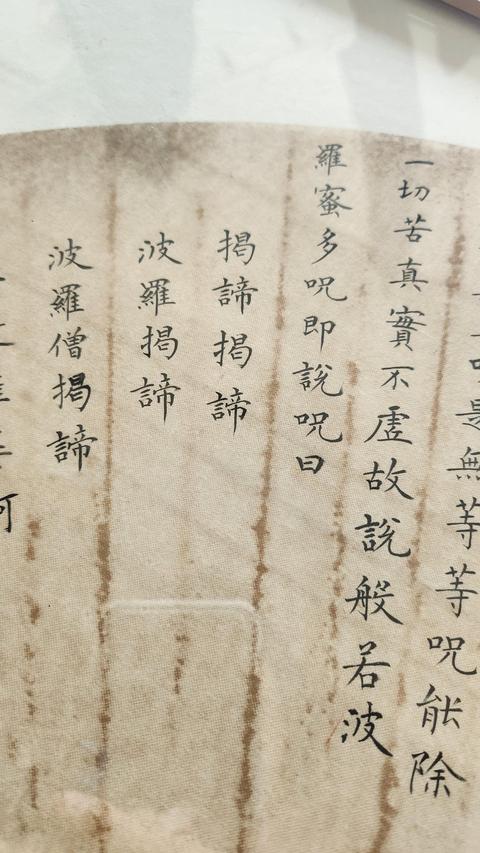 是無等等咒能除
一切苦真實不虛故說般若波
羅蜜多咒即說咒曰
揭諦揭諦
波羅揭諦
波羅僧揭諦